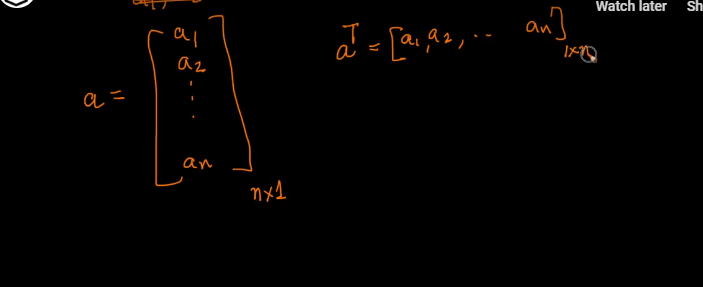 Watch later Sh
a = [a1
a2
⋮
an] n×1
a^T = [a1, a2, ·· an] 1×n